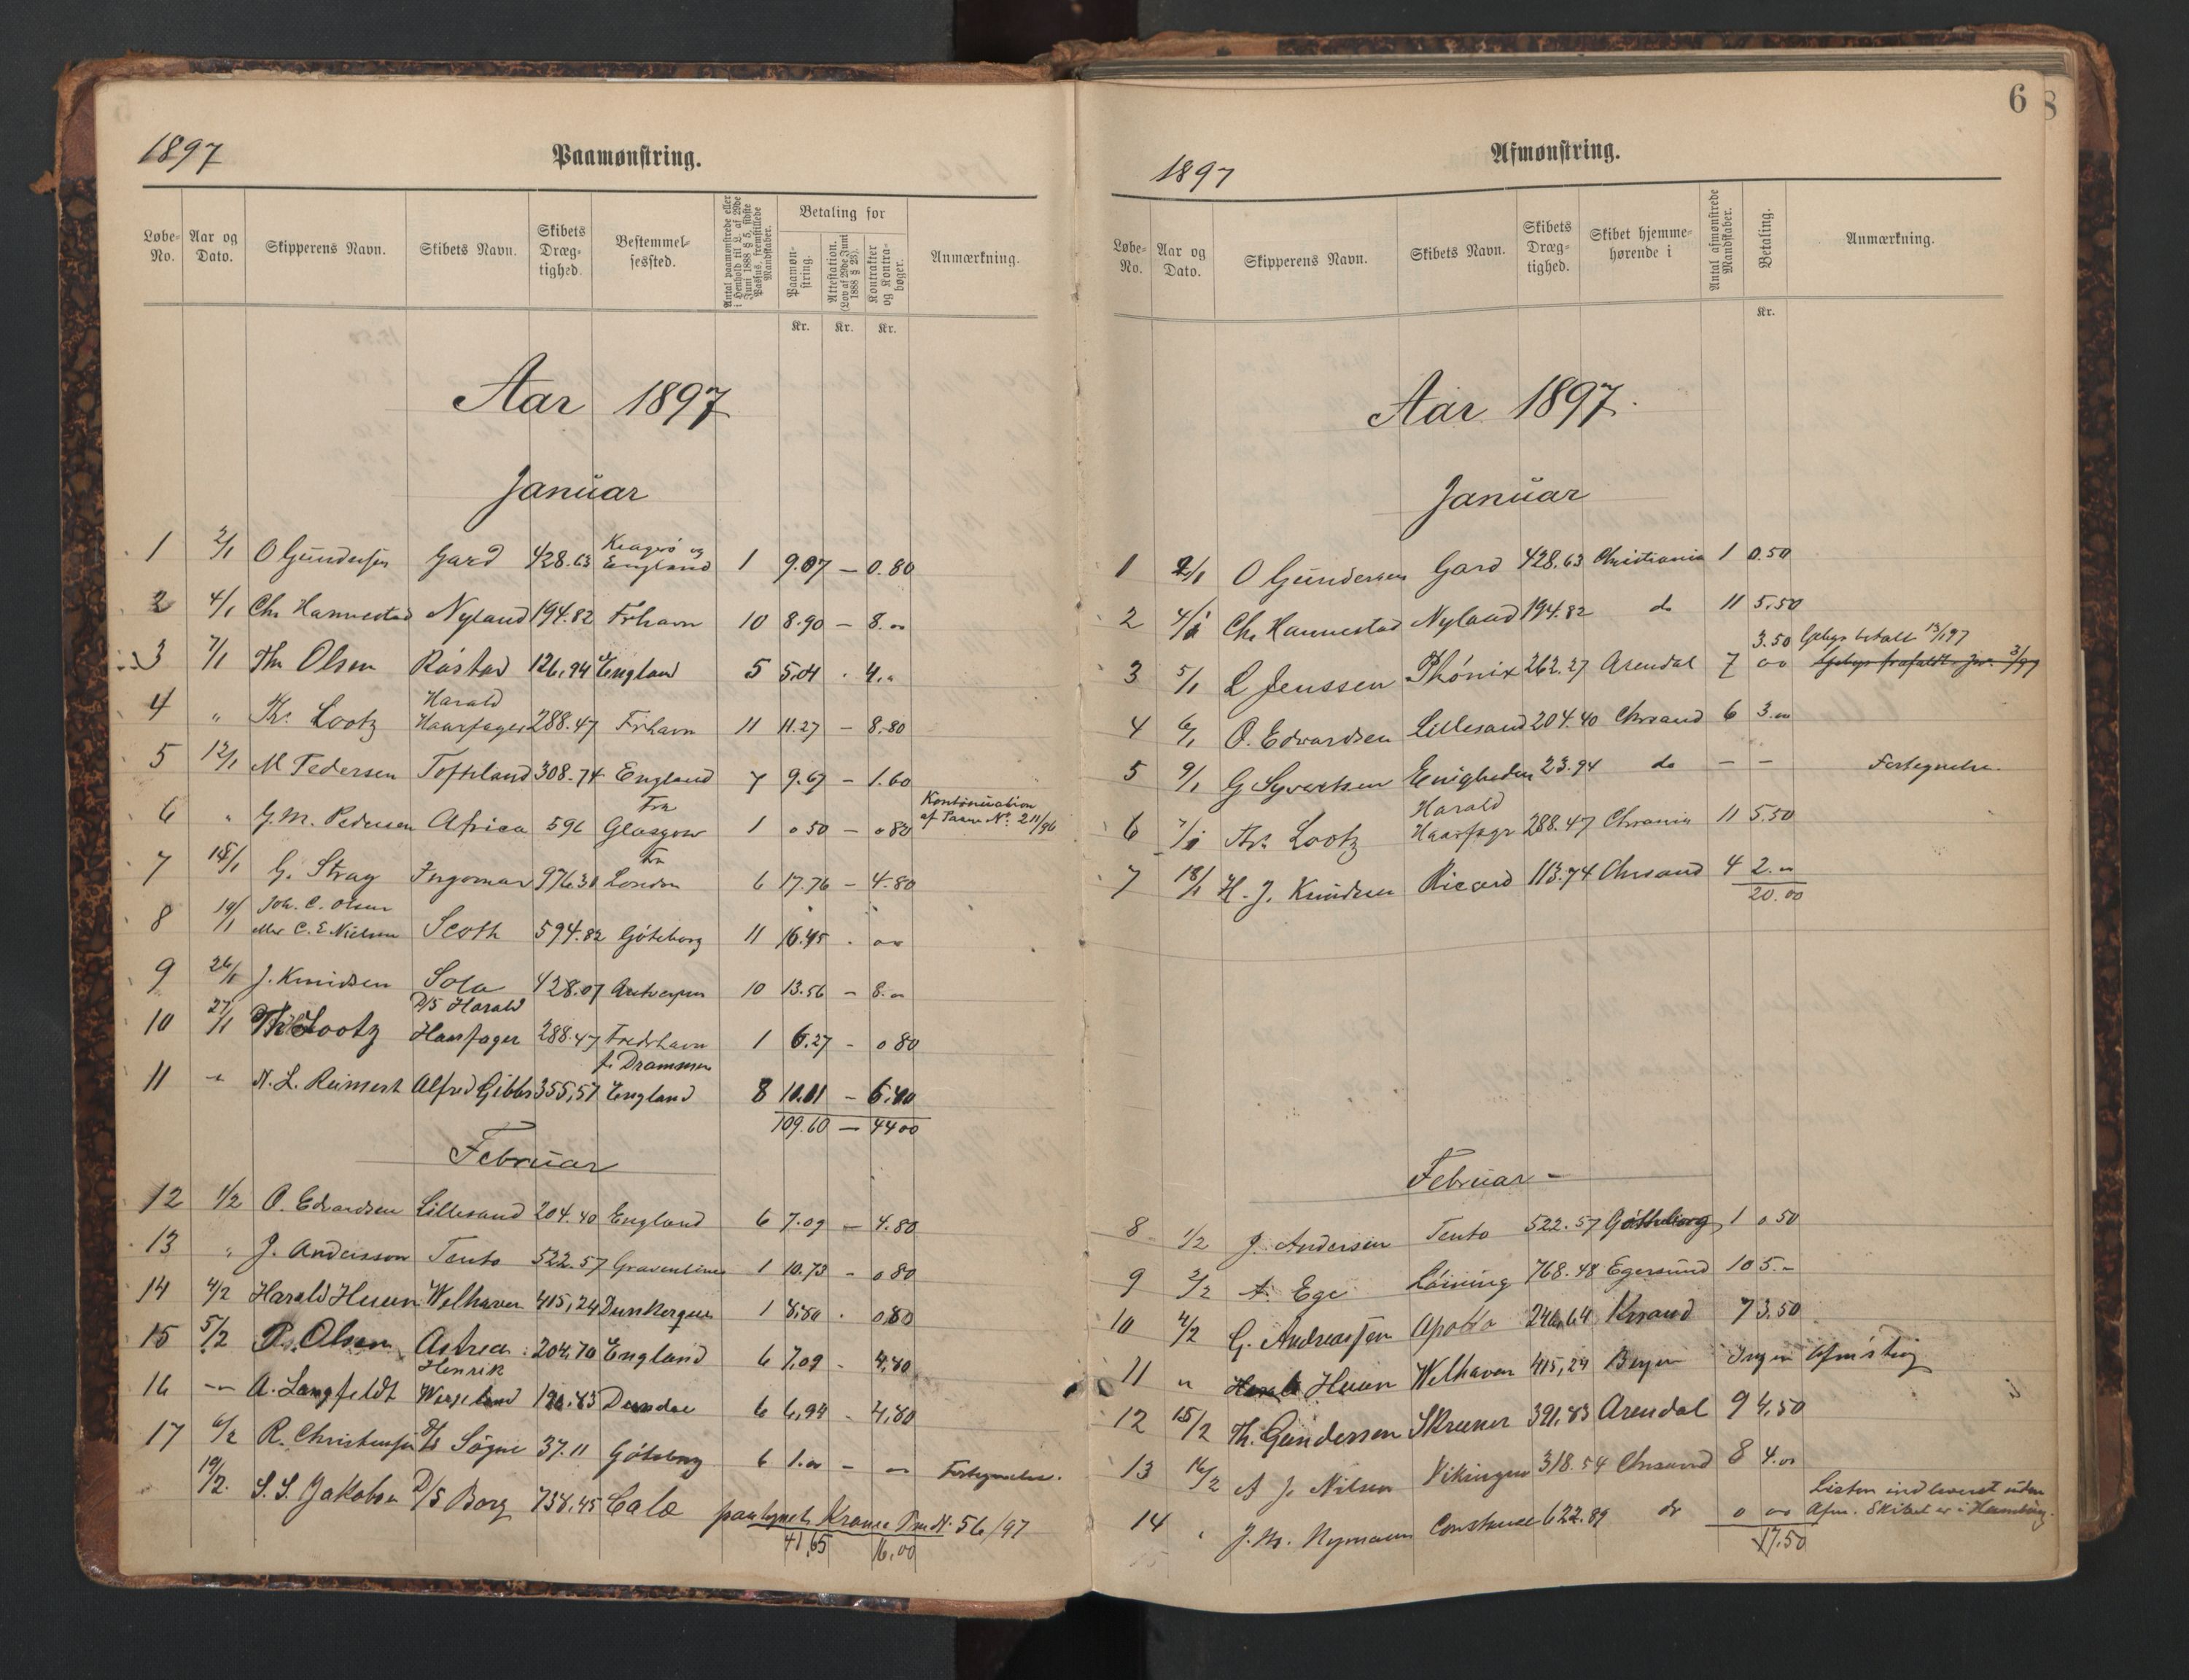 1897
Paamønstring.
Løbe-No. Aar og Dato. Skipperens Navn. Skibets Navn. Skibets Dræg-tighed. Bestemmel-sessted. Antal paamønstrede eller i Henhold til L. af 29de Juni 1888 § 5, sidste Passus, fremstillede Mandskaber. Betaling for Paamøn-string. Attestation. (Lov af 29de Juni 1888 § 28). Kontrakter og Kontra-bøger. Anmærkning.
Kr. Kr. Kr.
Aar 1897
Januar
1 2/1 O Gundersen Gard 428.63 Kragerö og England 1 9.07 — 0.80
2 4/1 Chr Hannestad Nyland 194.82 Frhavn 10 8.90 — 8.00
3 7/1 Thr Olsen Råstad 126,94 England 5 5,04 . 4,"
4 " Thr. Lootz Harald Haarfager 288.47 Frhavn 11 11.27 — 8.80
5 12/1 M Pedersen Toftsland 308.74 England 7 9.67 — 1.60
6 " G. M. Pedersen Africa 596 Fra Glasgow 1 0 50 — 0 80 Kontinuation af Paam No. 211/96
7 15/1 G. Stray Ingomar 976.38 Fra London 6 17.76 — 4.80
8 19/1 Joh. C. Olsen eller C. E. Nielsen Scoth 594.82 Göteborg 11 16.45 . 00
9 26/1 J. Knudsen Sola 428.07 Antverpen 10 13.56 — 8.00
10 27/1 Th Lootz D/S Harald Haarfager 288.47 Fredrhavn 1 6.27 - 0 80
11 " N. L. Reimert Alfred Gibbs 355,57 f. Drammen England 8 10.01 — 6,40
109.60 — 44 00
Februar
12 1/2 O. Edvardsen Lillesand 204.40 England 6 7.09 — 4.80
13 " J. Andersson Tento 522.57 Gravenlines 1 10.73 - 0 80
14 4/2 Harald Huun Welhaven 415,24 Dunkerque 1 8,80 . 0,80
15 5/2 P. Olsen Astrea 204,70 England 6 7,09 - 4,80
16 — A. Langfeldt Henrik Wergeland 190.83 Dundee 6 6,94 - 4,80
17 6/2 R. Christensen D/s Sögne 37.11 Göteborg 6 1.00 - — Fortegnelse.
19/2. S. S. Jakobsen D/S Borg 758,45 Cala paategnet 56/97
41,65 16,00
6
8
1897
Afmønstring.
Løbe-No. Aar og Dato. Skipperens Navn. Skibets Navn. Skibets Dræg-tighed. Skibet hjemme-hørende i Antal afmønstrede Mandskaber. Betaling. Anmærkning.
Kr.
Aar 1897.
Januar
1 2/1 O Gundersen Gard 428.63 Christiania 1 0.50
2 4/1 Chr Hannestad Nyland 194.82 do 11 5.50
3 5/1 L Jenssen Phönix 262.27 Arendal 7 3.50 Gebyr betalt 13/1 97
00 Gebyr frafaldt 3/97
4 6/1 O. Edvardsen Lillesand 204.40 Chrsand 6 3.00
5 9/1 G Syvertsen Enigheden 23.94 do — — Fortegnelse.
6 7/1 Thr. Lootz Harald Haarfagr 288.47 Chrania 11 5.50
7 18/1 H. J. Knudsen Ricard 113.74 Chrsand 4 2.00
20.00
Februar -
8 1/2 J. Andersen Tento 522.57 Götheborg 1 0.50
9 2/2 A. Ege Löining 768.48 Egersund 10 5.-
10 4/2 G. Andreassen Apollo 246,64 Krsand 7 3.50
11 " Harald Huun Welhaven 415,24 Bergen Ingen Afmöstrig
12 15/2 Th. Gundersen Skruner 391,83 Arendal 9 4,50
13 16/2 A J. Nilsen Vikingen 318.54 Chrsand 8 4.00
14 " J. M. Nymann Constance 622.89 do 0 00 Listen indleveret uden Afm. Skibet er i Hamburg.
17.50